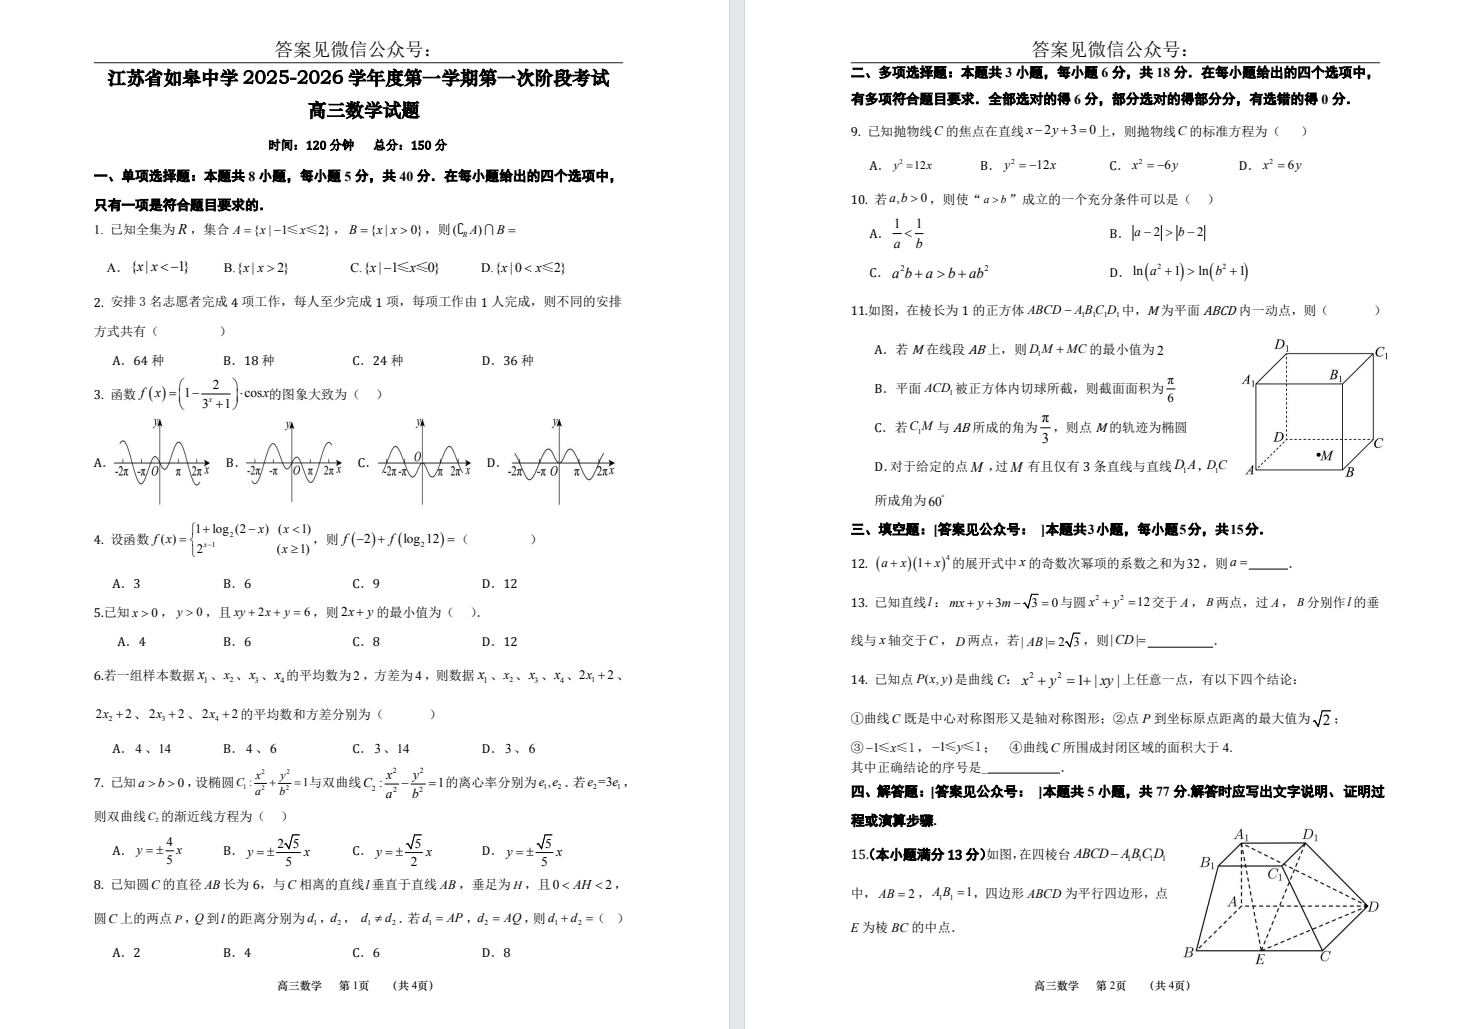 答案见微信公众号：
江苏省如皋中学 2025-2026 学年度第一学期第一次阶段考试
高三数学试题
时间：120 分钟 总分：150 分
一、单项选择题：本题共 8 小题，每小题 5 分，共 40 分．在每小题给出的四个选项中，
只有一项是符合题目要求的．
1. 已知全集为 R，集合 A = {x | −1≤x≤2}，B = {x | x > 0}，则 (∁_R A)∩B =
A. {x | x < −1} B. {x | x > 2} C. {x | −1≤x≤0} D. {x | 0 < x≤2}
2. 安排 3 名志愿者完成 4 项工作，每人至少完成 1 项，每项工作由 1 人完成，则不同的安排
方式共有（ ）
A. 64 种 B. 18 种 C. 24 种 D. 36 种
3. 函数 f(x) = (1 − 2/(3^x + 1))·cosx 的图象大致为（ ）
A. y -2π -π O π 2π x B. y -2π -π O π 2π x C. y -2π -π O π 2π x D. y -2π -π O π 2π x
4. 设函数 f(x) = { 1 + log₂(2 − x) (x < 1)
2^(x−1) (x ≥ 1) ，则 f(−2) + f(log₂12) =（ ）
A. 3 B. 6 C. 9 D. 12
5.已知 x > 0，y > 0，且 xy + 2x + y = 6，则 2x + y 的最小值为（ ）.
A. 4 B. 6 C. 8 D. 12
6.若一组样本数据 x₁、x₂、x₃、x₄ 的平均数为 2，方差为 4，则数据 x₁、x₂、x₃、x₄、2x₁ + 2、
2x₂ + 2、2x₃ + 2、2x₄ + 2 的平均数和方差分别为（ ）
A. 4、14 B. 4、6 C. 3、14 D. 3、6
7. 已知 a > b > 0，设椭圆 C₁ : x²/a² + y²/b² = 1 与双曲线 C₂ : x²/a² − y²/b² = 1 的离心率分别为 e₁, e₂．若 e₂=3e₁，
则双曲线 C₂ 的渐近线方程为（ ）
A. y = ±4/5 x B. y = ±2√5/5 x C. y = ±√5/2 x D. y = ±√5/5 x
8. 已知圆 C 的直径 AB 长为 6，与 C 相离的直线 l 垂直于直线 AB，垂足为 H，且 0 < AH < 2，
圆 C 上的两点 P，Q 到 l 的距离分别为 d₁，d₂， d₁ ≠ d₂．若 d₁ = AP，d₂ = AQ，则 d₁ + d₂ =（ ）
A. 2 B. 4 C. 6 D. 8
高三数学 第 1页 （共 4页）
答案见微信公众号：
二、多项选择题：本题共 3 小题，每小题 6 分，共 18 分．在每小题给出的四个选项中，
有多项符合题目要求．全部选对的得 6 分，部分选对的得部分分，有选错的得 0 分．
9. 已知抛物线 C 的焦点在直线 x − 2y + 3 = 0 上，则抛物线 C 的标准方程为（ ）
A. y² = 12x B. y² = −12x C. x² = −6y D. x² = 6y
10. 若 a, b > 0，则使“ a > b ”成立的一个充分条件可以是（ ）
A. 1/a < 1/b B. |a − 2| > |b − 2|
C. a²b + a > b + ab² D. ln(a² + 1) > ln(b² + 1)
11.如图，在棱长为 1 的正方体 ABCD − A₁B₁C₁D₁ 中，M 为平面 ABCD 内一动点，则（ ）
A. 若 M 在线段 AB 上，则 D₁M + MC 的最小值为 2
B. 平面 ACD₁ 被正方体内切球所截，则截面面积为 π/6
C. 若 C₁M 与 AB 所成的角为 π/3，则点 M 的轨迹为椭圆
D.对于给定的点 M ,过 M 有且仅有 3 条直线与直线 D₁A, D₁C
所成角为 60°
D₁ C₁ A₁ B₁ D C •M A B
三、填空题：[答案见公众号： ]本题共3小题，每小题5分，共15分．
12. (a + x)(1 + x)⁴ 的展开式中 x 的奇数次幂项的系数之和为 32，则 a = ______．
13. 已知直线 l：mx + y + 3m − √3 = 0 与圆 x² + y² = 12 交于 A，B 两点，过 A，B 分别作 l 的垂
线与 x 轴交于 C，D 两点，若 | AB |= 2√3，则 | CD |= __________．
14. 已知点 P(x, y) 是曲线 C: x² + y² = 1 + | xy | 上任意一点，有以下四个结论：
①曲线 C 既是中心对称图形又是轴对称图形；②点 P 到坐标原点距离的最大值为 √2；
③ −1≤x≤1，−1≤y≤1； ④曲线 C 所围成封闭区域的面积大于 4.
其中正确结论的序号是___________.
四、解答题：[答案见公众号： ]本题共 5 小题，共 77 分.解答时应写出文字说明、证明过
程或演算步骤.
15.（本小题满分 13 分）如图，在四棱台 ABCD − A₁B₁C₁D₁
中，AB = 2，A₁B₁ = 1，四边形 ABCD 为平行四边形，点
E 为棱 BC 的中点．
A₁ D₁ B₁ C₁ A D B E C
高三数学 第 2页 （共 4页）